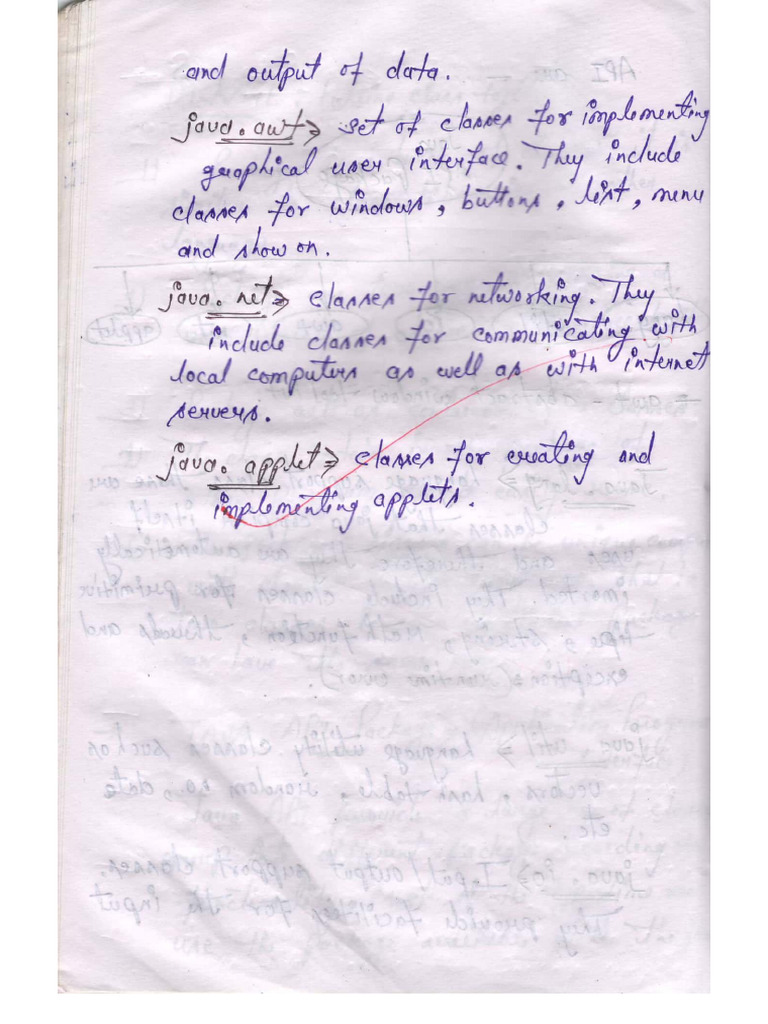 and output of data.
java.awt => set of classes for implementing
graphical user interface. They include
classes for windows, buttons, list, menu
and show on.
java. net => classes for networking. They
include classes for communicating with
local computers as well as with internet
servers.
java. applet => classes for creating and
implementing applets.